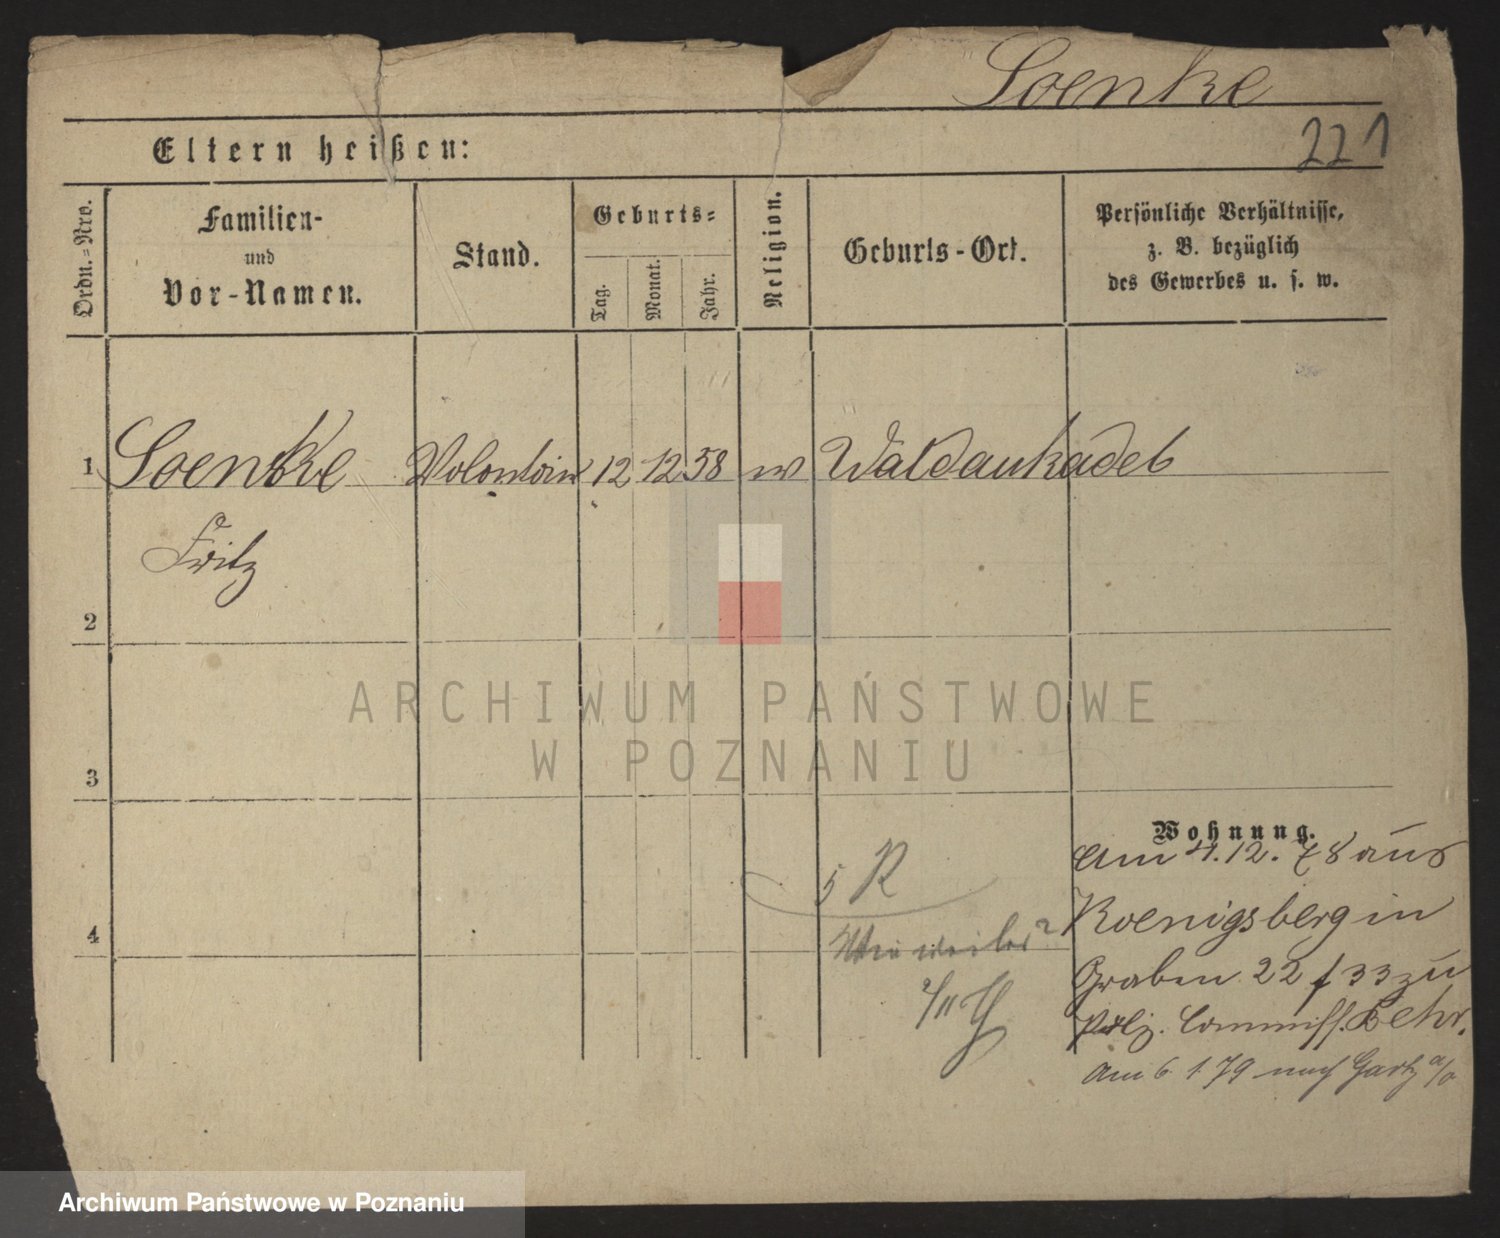 Soenke
221
Eltern heißen:
Ordn.-Nro.
Familien-
und
Vor-Namen.
Stand.
Geburts-
Tag.
Monat.
Jahr.
Religion.
Geburts-Ort.
Persönliche Verhältnisse,
z. B. bezüglich
des Gewerbes u. s. w.
1 Soenke Volontair 12 12 58 Waldaukadel
Fritz
2
3
4
Wohnung.
Am 4. 12. 78 aus
Koenigsberg in
Graben 22 f 33 zu
Poliz. Commiss. Behr.
Am 6. 1 79 nach Gartz a/o
5 R
ARCHIWUM PAŃSTWOWE
W POZNANIU
Archiwum Państwowe w Poznaniu